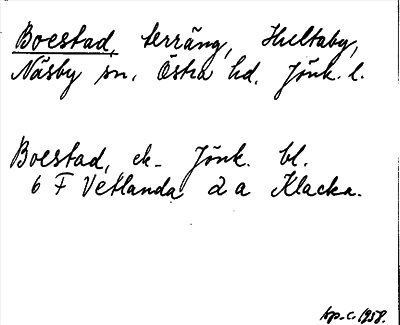 Boestad, terräng, Hultaby,
Näsby sn, Östra hd. Jönk. l.
Boestad, ek. Jönk. bl.
6 F Vetlanda 2 a Klacka.
sp. c. 1958.